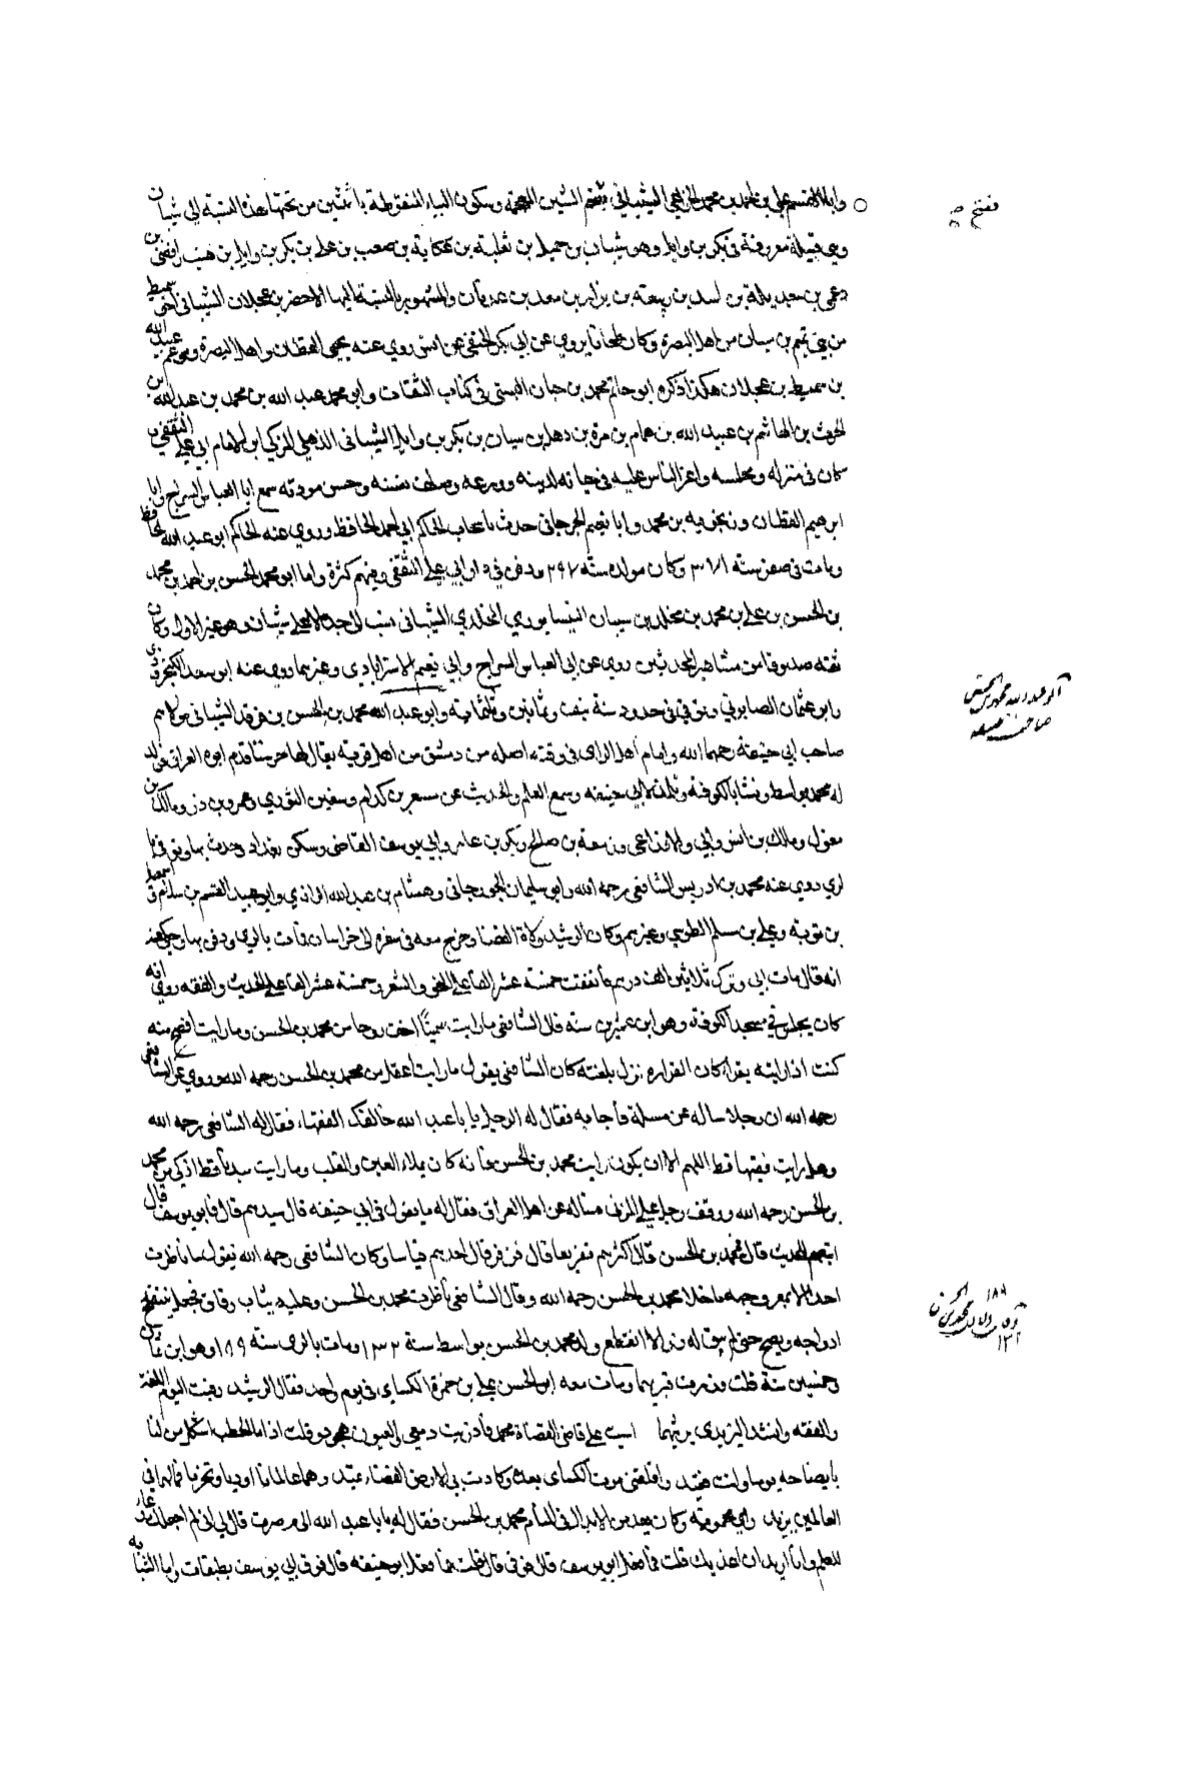 وابو القسم علي بن احمد بن محمد الخزاعي الشيباني بفتح الشين المعجمة وسكون الياء المنقوطة باثنتين من تحتها هذه النسبة الى شيبان
وهي قبيلة معروفة في بكر بن وايل وهو شيبان بن ثعلبة بن عكاية بن صعب بن علي بن بكر بن وايل بن هنب افصى بن
دعمي بن جديلة بن اسد بن ربيعة بن نزار بن معد بن عدنان والمشهور بالنسبة اليها الاخضر بن عجلان الشيباني اخى سميط
من بني تيم بن شيبان من اهل البصرة وكان طحانا يروي عن ابي بكر الحنفي عن انس روي عنه يحيى القطان واهل البصرة وهو عم عبيد الله
بن سميط بن عجلان هكذا ذكره ابو حاتم محمد بن حبان البستي في كتاب الثقات وابو محمد عبد الله بن محمد بن عبد الله ابن
عبيد الله بن همام بن مرة بن ذهل بن شيبان بن بكر بن وايل الشيباني الذهلي المزكي ابن الامام ابي علي الثقفي
كان في منزله ومجلسه واعز الناس عليه في حياته لدينه وورعه وحسن مودته سمع ابا العباس السراج وابا
ابرهيم القطان وزنجويه بن محمد وابا نعيم الجرجاني حدث باصحاب الحاكم ابي احمد الحافظ وروي عنه الحاكم ابو عبد الله الحافظ
ومات في صفر سنة ٣٧١ وكان مولده سنة ٢٩٧ ودفن في دار ابي علي الثقفي وفيهم كثرة واما ابو محمد الحسن بن احمد بن محمد
بن الحسن بن علي بن محمد بن مخلد بن شيبان النيسابوري المخلدي الشيباني نسب الى جده الاعلى شيبان وهو غير الاول وكان
ثقة صدوقا من مشاهير المحدثين روي عن ابي العباس السراج وابي نعيم الاستراباذي وغيرهما روي عنه ابو سعد الكنجروذي
وابو عثمان الصابوني وتوفي في حدود سنة نيف وثمانين وثلثماية وابو عبد الله محمد بن الحسن بن فرقد الشيباني مولاهم
صاحب ابي حنيفة رحمهما الله وامام اهل الراي في وقته اصله من دمشق من اهل قرية يقال لها حرستا قدم ابوه العراق فولد
له محمد بواسط ونشا بالكوفة وتلمذ لابي حنيفه وسمع العلم والحديث عن مسعر بن كدام وسفين الثوري وعمرو بن ذر ومالك بن
مغول ومالك بن انس وابي والاوزاعي وزمعة بن صالح وبكير بن عامر وابي يوسف القاضي وسكن بغداد وحدث بها
روي عنه محمد بن ادريس الشافعي رحمه الله وابو سليمان الجوزجاني وهشام بن عبيد الله الرازي وابو عبيد القسم بن سلام
بن توبة وعلي بن مسلم الطوسي وغيرهم وكان الرشيد ولاه القضا وخرج معه في سفره الى خراسان فمات بالري ودفن بها وحكى عنه
انه قال مات ابي وترك ثلاثين الف درهم فانفقت خمسة عشر الفا على النحو والشعر وخمسة عشر الفا على الحديث والفقه روي انه
كان يجلس في مسجد الكوفة وهو ابن عشرين سنة قال الشافعي ما رايت سمينا اخف روحا من محمد بن الحسن وما رايت افصح منه
كنت اذا رايته يقرا كان القران نزل بلغته كان الشافعي يقول ما رايت اعقل من محمد بن الحسن رحمه الله وروي عن الشافعي
رحمه الله ان رجلا ساله عن مسلة فاجابه فقال له الرجل يا با عبد الله خالفك الفقهاء فقال له الشافعي رحمه الله
وهل رايت فقيها قط اللهم الا ان يكون رايت محمد بن الحسن فانه كان يملاء العين والقلب وما رايت مبدنا قط اذكى من محمد
بن الحسن رحمه الله ووقف رجل على المزني فساله عن اهل العراق فقال له ما يقول في ابي حنيفه قال سيدهم قال فابو يوسف قال
اتبعهم للحديث قال فمحمد بن الحسن قال اكثرهم تفريعا قال فزفر قال احدهم قياسا وكان الشافعي رحمه الله يقول ما ناظرت
احدا الا تمعر وجهه ما خلا محمد بن الحسن رحمه الله وقال الشافعي ناظرت محمد بن الحسن وعليه ثياب رقاق فجعل ينتفخ
اوداجه ويصيح حتى لم يبق له زر الا انقطع ولد محمد بن الحسن بواسط سنة ١٣٢ ومات بالري سنة ١٨٩ وهو ابن ثمان
وخمسين سنة قلت وزرت قبريهما ومات معه ابو الحسن علي بن حمزة الكساي في يوم واحد فقال الرشيد دفنت اليوم اللغة
والفقه وانشد اليزيدي يرثيهما اسيت على قاضي القضاة محمد فاذريت دمعي والعيون هجود وقلت اذا ما الخطب اشكل من لنا
بايضاحه يوما وانت فقيد واقلقني موت الكساي بعده وكادت بي الارض الفضاء تميد وهما عالمانا اوديا وتخرما فما لهما في
العالمين نديد وراي محمويه وكان يعد من الابدال في المنام محمد بن الحسن فقال له يا با عبد الله الى م صرت قال لي اني لم اجعلك وعاء
للعلم وانا اريد ان اعذبك قلت فما فعل ابو يوسف قال فوقي قال قلت فما فعل ابو حنيفه قال فوق ابي يوسف بطبقات واما
مفتح
ابو عبد الله محمد بن الحسن
صاحب
١٨٩
١٣٢